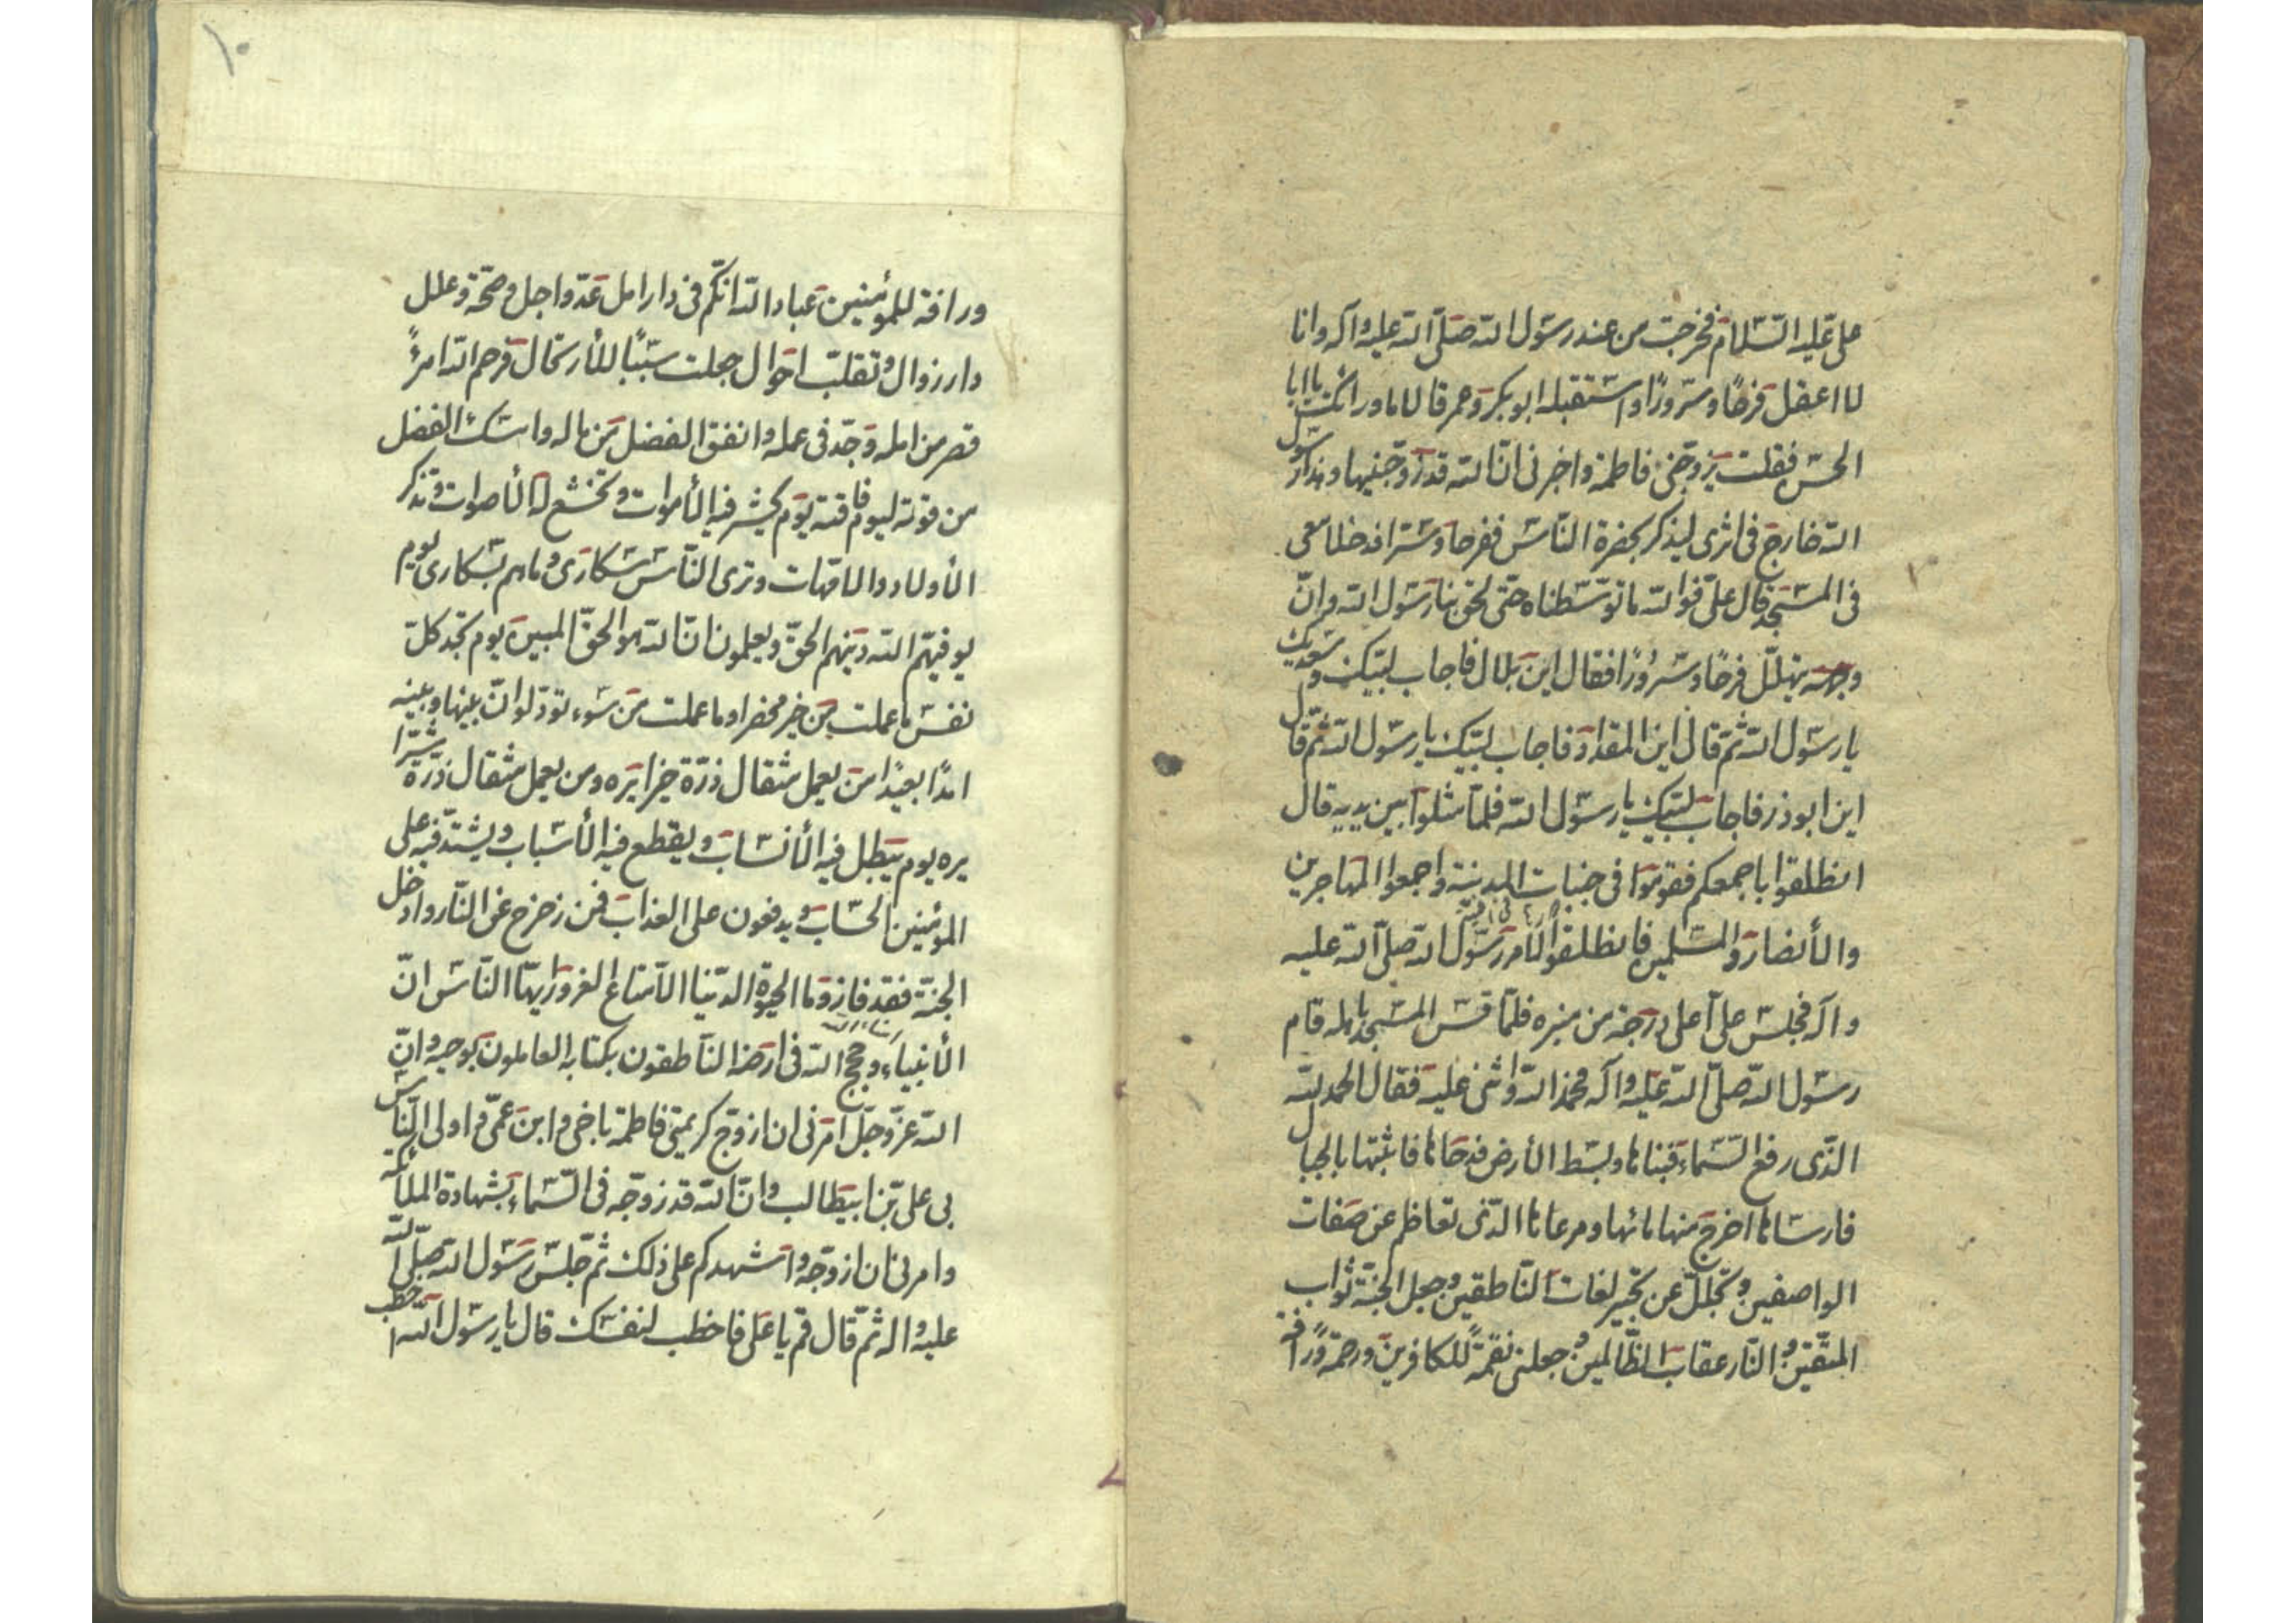 على عليه السّلام فخرجت من عند رسول الله صلّى الله عليه وآله وانا
لا اعقل فرحًا وسرورًا واستقبله ابوبكر وعمر قالا ما وراك يا ابا
الحسن فقلت يزوجنى فاطمة واخبرنى انّ الله قد زوّجنيها وهذا رسول
الله خارج فى اثرى ليذكر بحضرة النّاس ففرحا وسرّا فدخلا معى
فى المسجد قال علىّ فوالله ما توسّطناه حتّى لحق بنا رسول الله وانّ
وجهه يتهلّل فرحًا وسرورًا فقال اين بلال فاجاب لبّيك وسعديك
يا رسول الله ثمّ قال اين المقداد فاجاب لبّيك يا رسول الله ثمّ قال
اين ابوذر فاجاب لبّيك يا رسول الله فلمّا مثلوا بين يديه قال
انطلقوا باجمعكم فقوموا فى جنبات المدينة واجمعوا المهاجرين
والأنصار والمسلمين فانطلقوا لأمر رسول الله صلّى الله عليه
وآله فجلس على اعلى درجة من منبره فلمّا المسجد باهله قام
رسول الله صلّى الله عليه وآله فحمد الله واثنى عليه فقال الحمد لله
الّذى رفع السّماء فبناها وبسط الأرض فدحاها فاثبتها بالجبال
فارساها اخرج منها مائها ومرعاها الّذى تعاظم عن صفات
الواصفين وتجلّل عن تحبير لغات النّاطقين وجعل الجنّة ثواب
المتّقين والنّار عقاب الظّالمين وجعلنى نقمةً للكافرين ورحمة ورافة
ورافة للمؤمنين عباد الله انّكم فى دار امل عدّ واجل وصحّة وعلل
دار زوال وتقلّب احوال جعلت سببًا للأرتحال فرحم الله امرءً
قصر من امله وجدّ فى عمله وانفق الفضل من ماله وامسك الفضل
من قوته ليوم فاقته يوم يحشر فيه الأموات وتخشع له الأصوات وتذكر
الأولاد والامّهات وترى النّاس سكارى وما هم بسكارى يوم
يوفيهم الله دينهم الحقّ ويعلمون انّ الله هو الحقّ المبين يوم تجد كلّ
نفس ما عملت من خير محضرا وما عملت من سوء تودّ لو انّ بينها وبينه
امدًا بعيدًا من يعمل مثقال ذرّة خيرا يره ومن يعمل مثقال ذرّة شرّا
يره يوم يبطل فيه الأنساب ويقطع فيه الأسباب ويشتدّ فيه على
المؤمنين الحساب ويدفعون على العذاب فمن زحزح عن النّار وادخل
الجنّة فقد فاز وما الحيوة الدّنيا الّا متاع الغرور ايّها النّاس انّ
الأنبياء وحجج الله فى ارضه النّاطقون بكتابه العاملون بوحيه وانّ
الله عزّ وجلّ امرنى ان ازوّج كريمتى فاطمة باخى وابن عمّى واولى النّاس
بى على بن ابيطالب وانّ الله قد زوّجه فى السّماء بشهادة الملائكة
وامرنى ان ازوّجه واشهدكم على ذلك ثمّ جلس رسول الله صلّى الله
عليه واله ثمّ قال قم يا على فاخطب لنفسك قال يا رسول الله اخطب
١٠